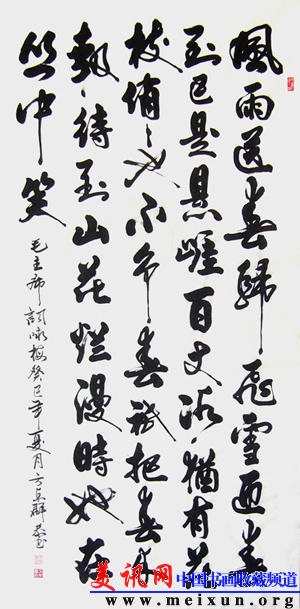 風雨送春歸飛雪迎春
到已是懸崖百丈冰猶有花
枝俏々也不争春祇把春来
報待到山花爛漫時她在
丛中笑
毛主席詞咏梅癸巳年夏月方
美讯网 中国书画收藏频道
www.meixun.org